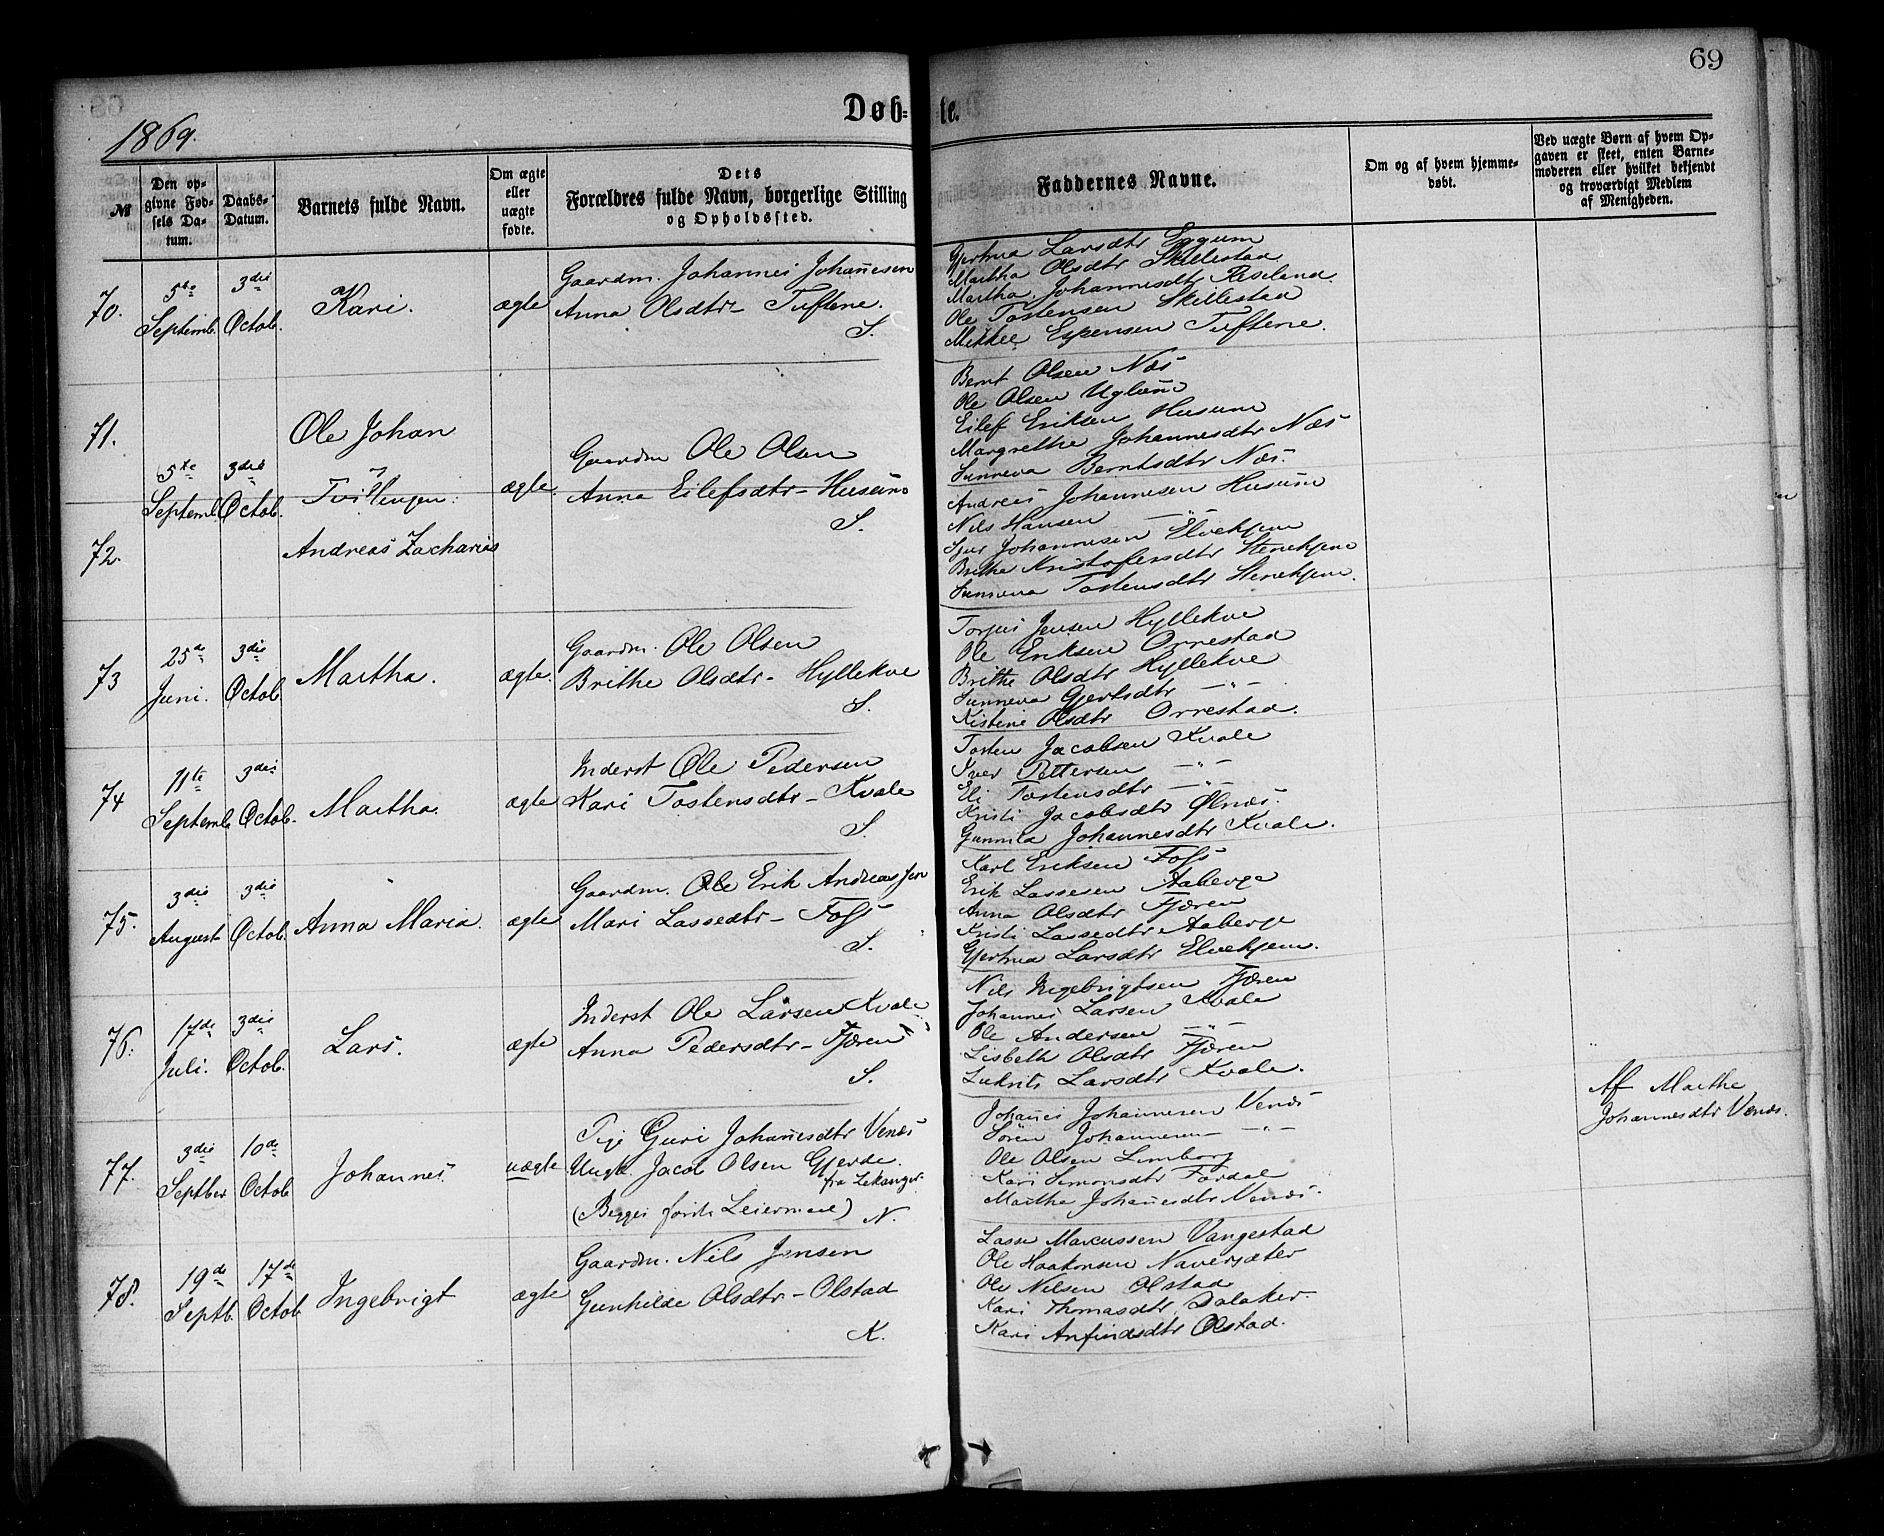 69
Døb-te.
1869.
№
Den opgivne Fødsels Datum.
Daabs-Datum.
Barnets fulde Navn.
Om ægte eller uægte fødte.
Dets Forældres fulde Navn, borgerlige Stilling og Opholdssted.
Faddernes Navne.
Om og af hvem hjemmedøbt.
Ved uægte Børn af hvem Opgaven er skeet, enten Barnemoderen eller hvilket bekjendt og troværdigt Medlem af Menigheden.
70.
5te Septemb.
3die Octob.
Kari.
ægte
Gaardm. Johannes Johañesen
Anna Olsdtr - Tuftene.
S.
Gjertrud Larsdtr Eggum
Martha Olsdtr Skillestad
Martha Johannesdtr Riseland.
Ole Tostensen Skillestad
Mikkel Espensen Tuftene.
71.
Ole Johan
5te Septemb.
3die Octob.
Tvillinger:
ægte.
Gaardm Ole Olsen
Anna Eilefsdtr - Husum
S.
72.
Andreas Zacharias
Bernt Olsen Næs
Ole Olsen Uglum
Eilef Eriksen Husum
Margrethe Johannesdtr Næs
Sunneva Berntsdtr Næs.
Andreas Johannesen Husum
Nils Hansen —"—
Sjur Johannesen Elvekjem
Brithe Kristofersdtr Stenehjem
Sunneva Tostensdtr Stenehjem.
73
25de Juni.
3die Octob
Martha.
ægte.
Gaardm. Ole Olsen
Brithe Olsdtr - Hyllekve
S.
Torjus Jensen Hyllekve
Ole Eriksen Orrestad
Brithe Olsdtr Hyllekve
Sunneva Gjertsdtr —"—
Kistine Olsdtr Orrestad.
74
11te Septemb
3die Octob.
Martha.
ægte
Inderst Ole Pedersen
Kari Tostensdtr - Kvale
S.
Tosten Jacobsen Kvale
Iver Pettersen —"—
Eli Tostensdtr —"—
Kristi Jacobsdtr Ølnæs.
Gunnila Johannesdtr Kvale.
75.
3die August
3die Octob.
Anna Maria.
ægte
Gaardm. Ole Erik Andreassen
Mari Lassedtr - Foss
S.
Karl Eriksen Foss
Erik Lassesen Aaberge
Anna Olsdtr Fjæren
Kristi Lassedtr Aaberge
Gjertrud Larsdtr Elvekjem.
76.
17de Juli.
3die Octob.
Lars.
ægte
Inderst Ole Larsen Kvale
Anna Pedersdtr - Fjæren
S.
Nils Ingebrigtsen Fjæren
Johannes Larsen Kvale
Ole Andersen —"—
Lisbeth Olsdtr Fjæren
Lukrits Larsdtr Kvale.
77.
3die Septber
10de Octob
Johannes.
uægte
Pige Guri Johañesdtr Venæs
Ungk. Jacob Olsen Gjerde.
fra Lekanger.
(Begges første Leiermaal)
N.
Johañes Johannesen Venæs
Sören Johannesen —"—
Ole Olsen Limborg
Kari Simonsdtr Fardal
Martha Johañesdtr Venæs.
Af Marthe
Johannesdtr Venæs.
78.
19de Septb.
17de Octob
Ingebrigt
ægte
Gaardm. Nils Jensen
Gunhilde Olsdtr - Olstad
K.
Lasse Marcussen Vangestad
Ole Haakonsen Naversæter
Ole Nilsen Olstad
Kari Thomasdtr Dalaker.
Kari Anfindsdtr Olstad.